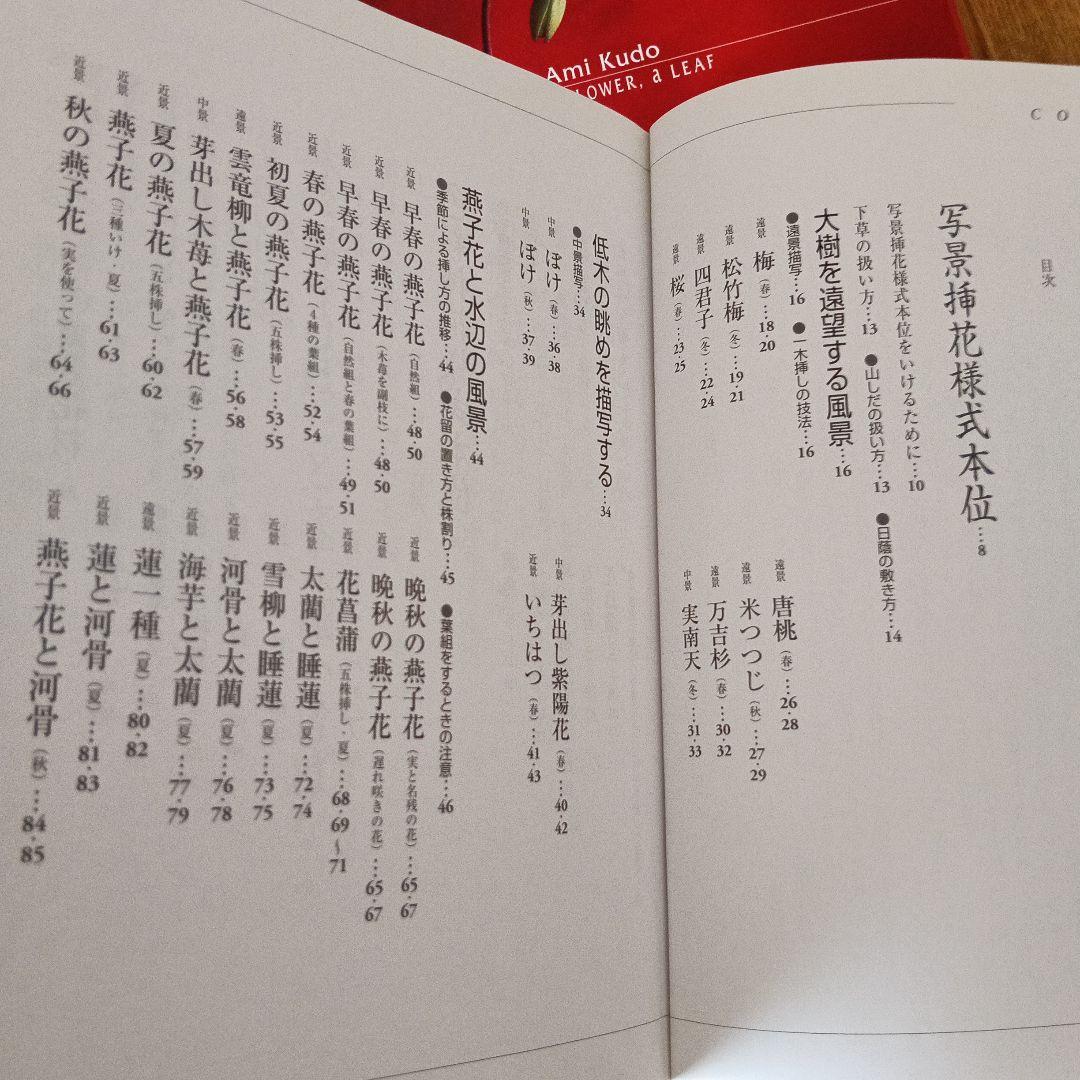 Ami Kudo
LOWER, a LEAF
CO
目次
写景挿花様式本位…8
写景挿花様式本位をいけるために…10
下草の扱い方…13 ●山しだの扱い方…13 ●日蔭の敷き方…14
大樹を遠望する風景…16
●遠景描写…16 ●一木挿しの技法…16
遠景 梅(春)…18・20
遠景 松竹梅(冬)…19・21
遠景 四君子(冬)…22・24
遠景 桜(春)…23・25
遠景 唐桃(春)…26・28
遠景 米つつじ(秋)…27・29
遠景 万吉杉(春)…30・32
中景 実南天(冬)…31・33
低木の眺めを描写する…34
●中景描写…34
中景 ぼけ(春)…36・38
中景 ぼけ(秋)…37・39
中景 芽出し紫陽花(春)…40・42
近景 いちはつ(春)…41・43
燕子花と水辺の風景…44
●季節による挿し方の推移…44 ●花留の置き方と株割り…45 ●葉組をするときの注意…46
近景 早春の燕子花(自然組)…48・50
近景 早春の燕子花(木苺を副枝に)…48・50
近景 早春の燕子花(自然組と春の葉組)…49・51
近景 春の燕子花(4種の葉組)…52・54
近景 初夏の燕子花(五株挿し)…53・55
遠景 雲竜柳と燕子花(春)…56・58
中景 芽出し木苺と燕子花(春)…57・59
近景 夏の燕子花(五株挿し)…60・62
近景 燕子花(三種いけ・夏)…61・63
近景 秋の燕子花(実を使って)…64・66
近景 晩秋の燕子花(実と名残の花)…65・67
近景 晩秋の燕子花(遅れ咲きの花)…65・67
近景 花菖蒲(五株挿し・夏)…68・69〜71
近景 太藺と睡蓮(夏)…72・74
近景 雪柳と睡蓮(夏)…73・75
近景 河骨と太藺(夏)…76・78
近景 海芋と太藺(夏)…77・79
遠景 蓮一種(夏)…80・82
近景 蓮と河骨(夏)…81・83
近景 燕子花と河骨(秋)…84・85